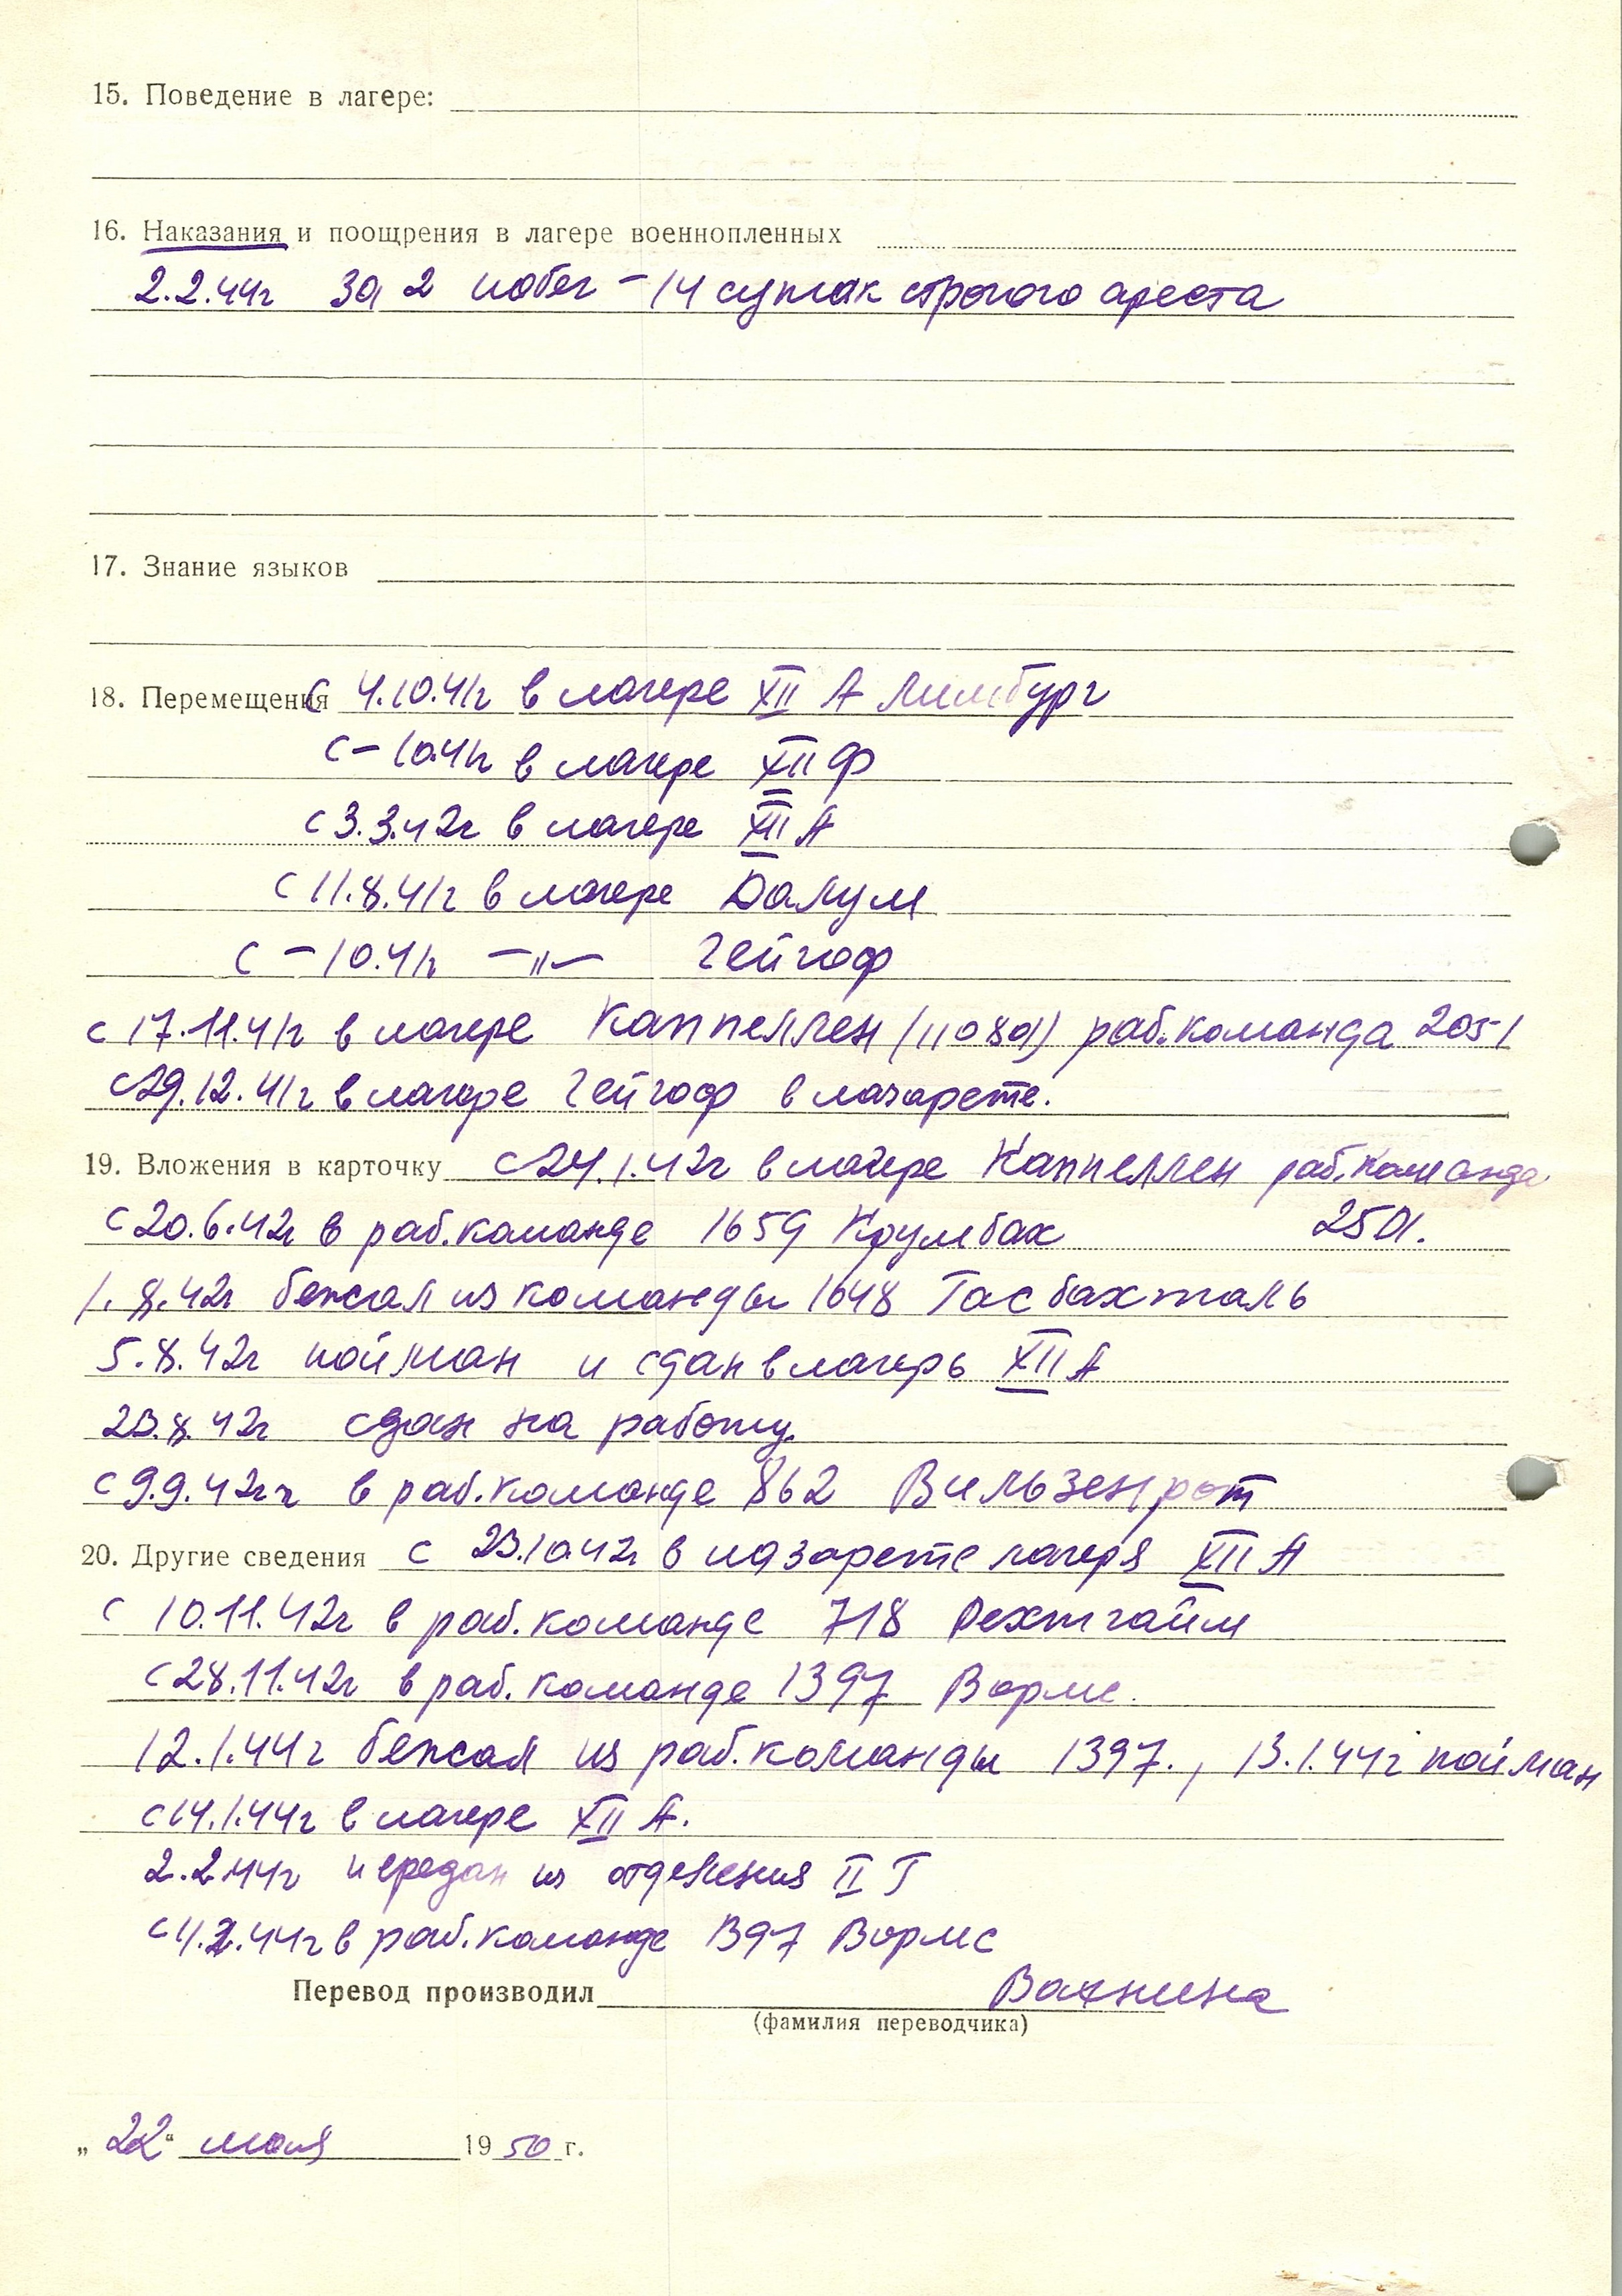 15. Поведение в лагере:
16. Наказания и поощрения в лагере военнопленных
2.2.44г за 2 побег - 14 суток строгого ареста
17. Знание языков
18. Перемещения С 4.10.41г в лагере XII А Лимбург
С - 10.41г в лагере XII Ф
с 3.3.42г в лагере XII А
с 11.8.41г в лагере Далум
с - 10.41г -"- Гейгоф
с 17.11.41г в лагере Каппеллен (110801) раб.команда 2051
с 29.12.41г в лагере Гейгоф в лазарете.
19. Вложения в карточку с 24.1.42г в лагере Каппеллен раб.команда
с 20.6.42г в раб.команде 1659 Крумбах 2501.
1.8.42г бежал из команды 1648 Гасбахталь
5.8.42г пойман и сдан в лагерь XII А
23.8.42г сдан на работу.
с 9.9.42г в раб.команде 862 Вильзенрот
20. Другие сведения с 23.10.42г в лазарете лагеря XII А
с 10.11.42г в раб.команде 718
с 28.11.42г в раб.команде 1397 Вормс.
12.1.44г бежал из раб.команды 1397., 13.1.44г пойман
с 14.1.44г в лагере XII А.
2.2.44г передан из отделения II Г
с 4.2.44г в раб.команде 1397 Вормс
Перевод производил
(фамилия переводчика)
„22“ мая 1950 г.